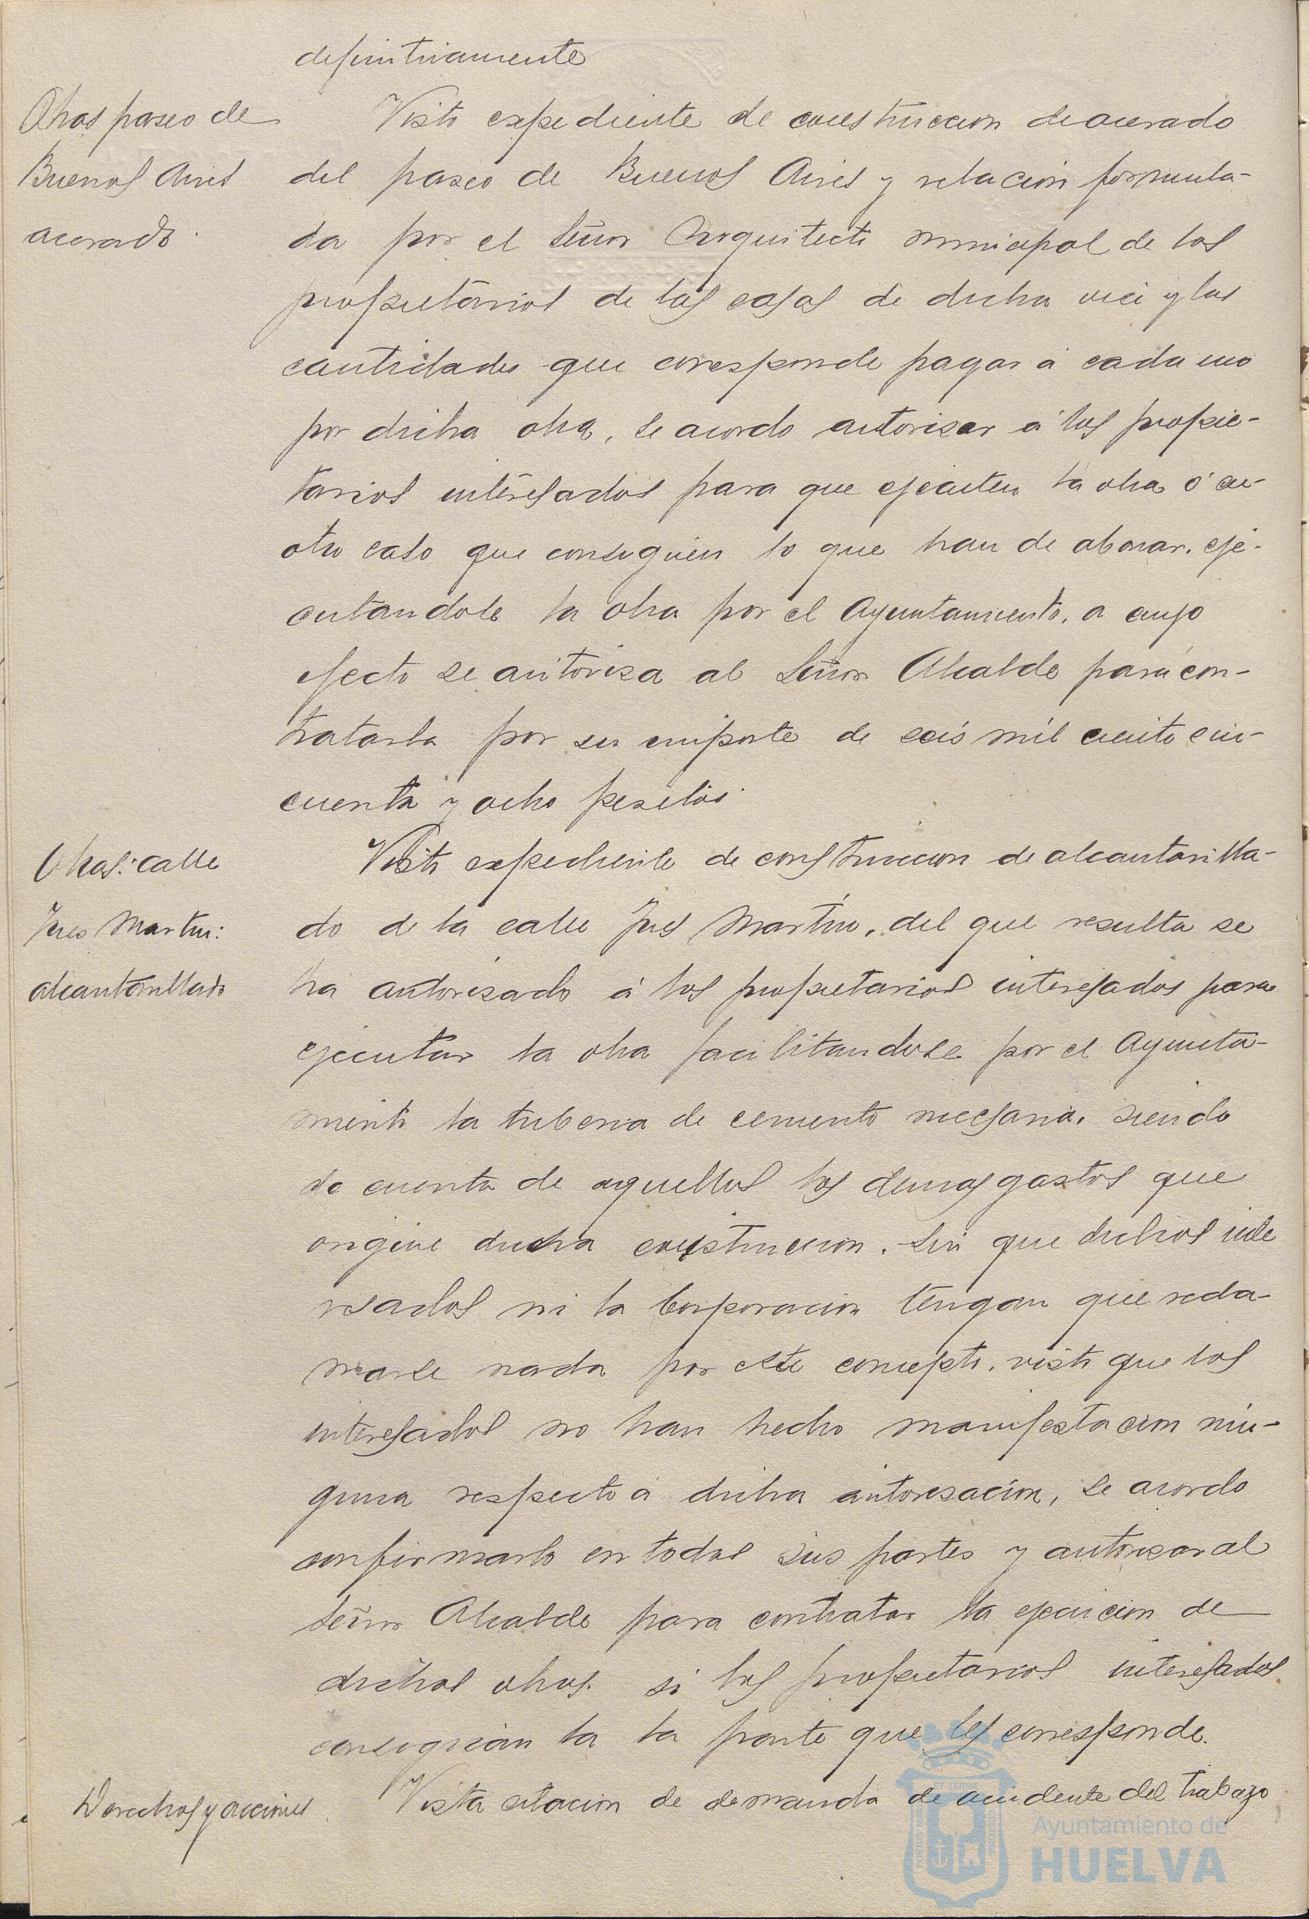 definitivamente
Obras paseo de
Buenos Aires
acerado.
Visto expediente de construccion de acerado
del paseo de Buenos Aires y relacion formula-
da por el Señor Arquitecto municipal de los
propietarios de las casas de dicha via y las
cantidades que coresponde pagar á cada uno
por dicha obra, se acordo autorizar á los propie-
tarios interesados para que ejecuten la obra ó en
otro caso que consignen lo que han de abonar, eje-
cutandose la obra por el Ayuntamiento, a cuyo
efecto se autoriza al Señor Alcalde para con-
tratarla por su importe de seis mil ciento cin-
cuenta y ocho pesetas.
Obras: calle
Ines Martin:
alcantarillado
Visto expediente de construccion de alcantarilla-
do de la calle Ines Martin, del que resulta se
ha autorizado á los propietarios interesados para
ejecutar la obra facilitandose por el Ayunta-
miento la tuberia de cemento necesaria, siendo
de cuenta de aquellos los demas gastos que
origine dicha construccion, sin que dichos inte
resados ni la Corporacion tengan que recla-
marse nada por este concepto, visto que los
interesados no han hecho manifestacion nin-
guna respecto á dicha autorizacion, se acordo
confirmarlo en todas sus partes y autorizar al
Señor Alcalde para contratar la ejecucion de
dichas obras si los propietarios interesados
consignan la la parte que les corresponde.
Derechos y acciones
Vista citacion de demanda de accidente del trabajo
Ayuntamiento de
HUELVA